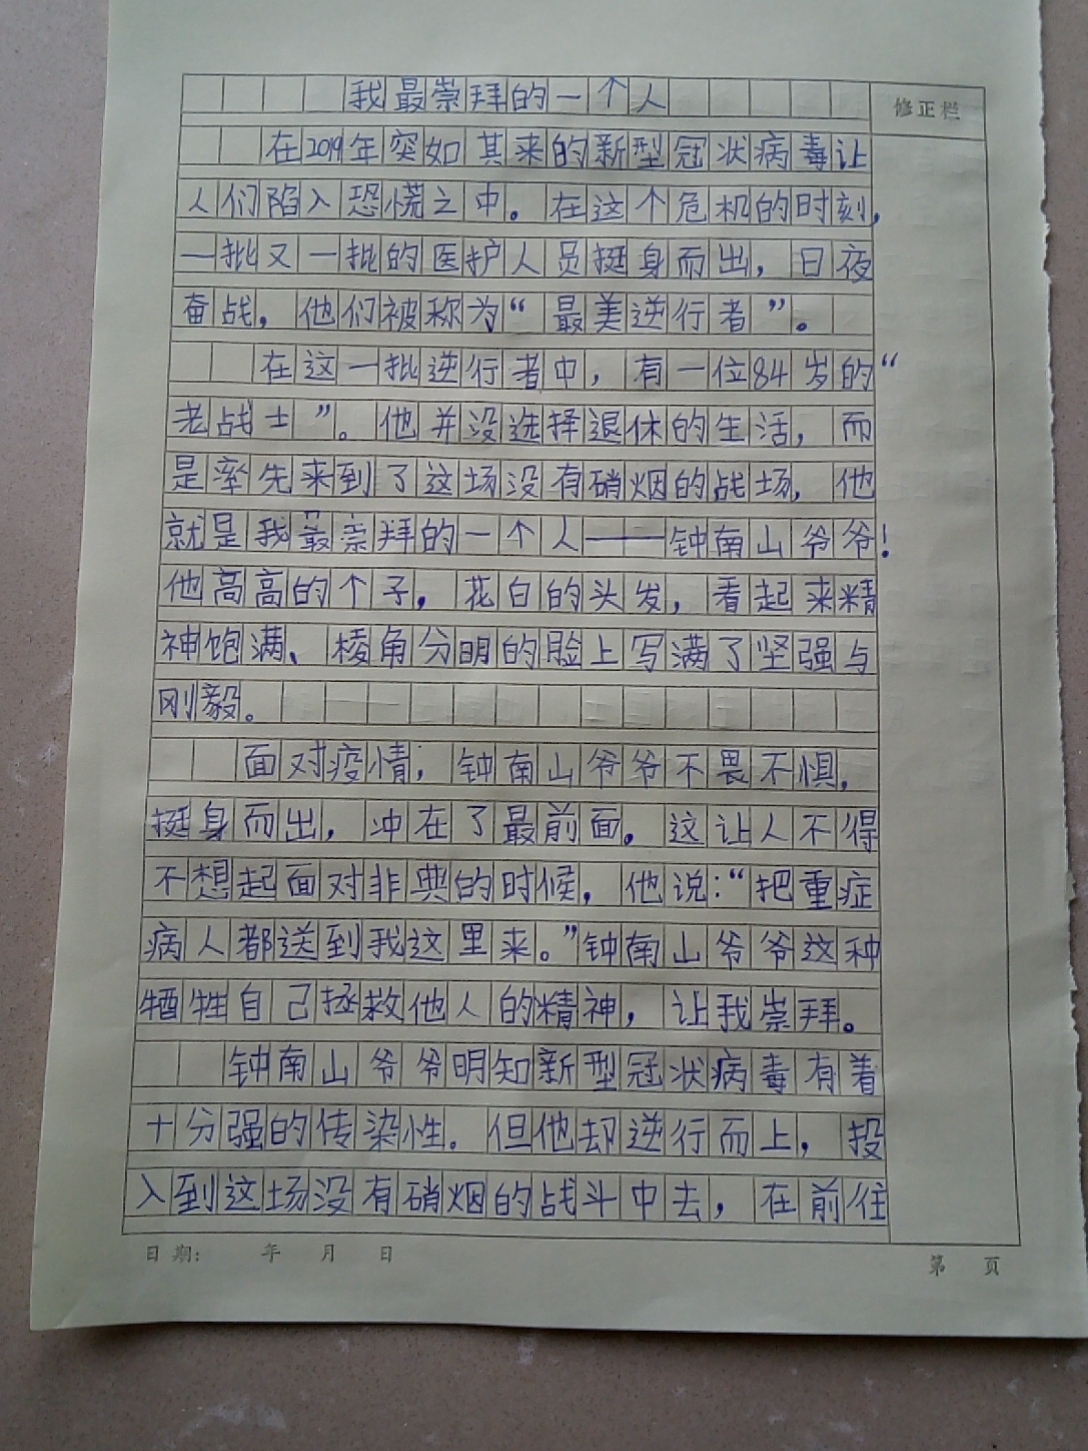 我最崇拜的一个人
修正栏
在2019年突如其来的新型冠状病毒让
人们陷入恐慌之中。在这个危机的时刻，
一批又一批的医护人员挺身而出，日夜
奋战，他们被称为“最美逆行者”。
在这一批逆行者中，有一位84岁的“
老战士”。他并没选择退休的生活，而
是率先来到了这场没有硝烟的战场，他
就是我最崇拜的一个人——钟南山爷爷！
他高高的个子，花白的头发，看起来精
神饱满、棱角分明的脸上写满了坚强与
刚毅。
面对疫情，钟南山爷爷不畏不惧，
挺身而出，冲在了最前面。这让人不得
不想起面对非典的时候，他说：“把重症
病人都送到我这里来。”钟南山爷爷这种
牺牲自己拯救他人的精神，让我崇拜。
钟南山爷爷明知新型冠状病毒有着
十分强的传染性。但他却逆行而上，投
入到这场没有硝烟的战斗中去，在前往
日期： 年 月 日
第 页